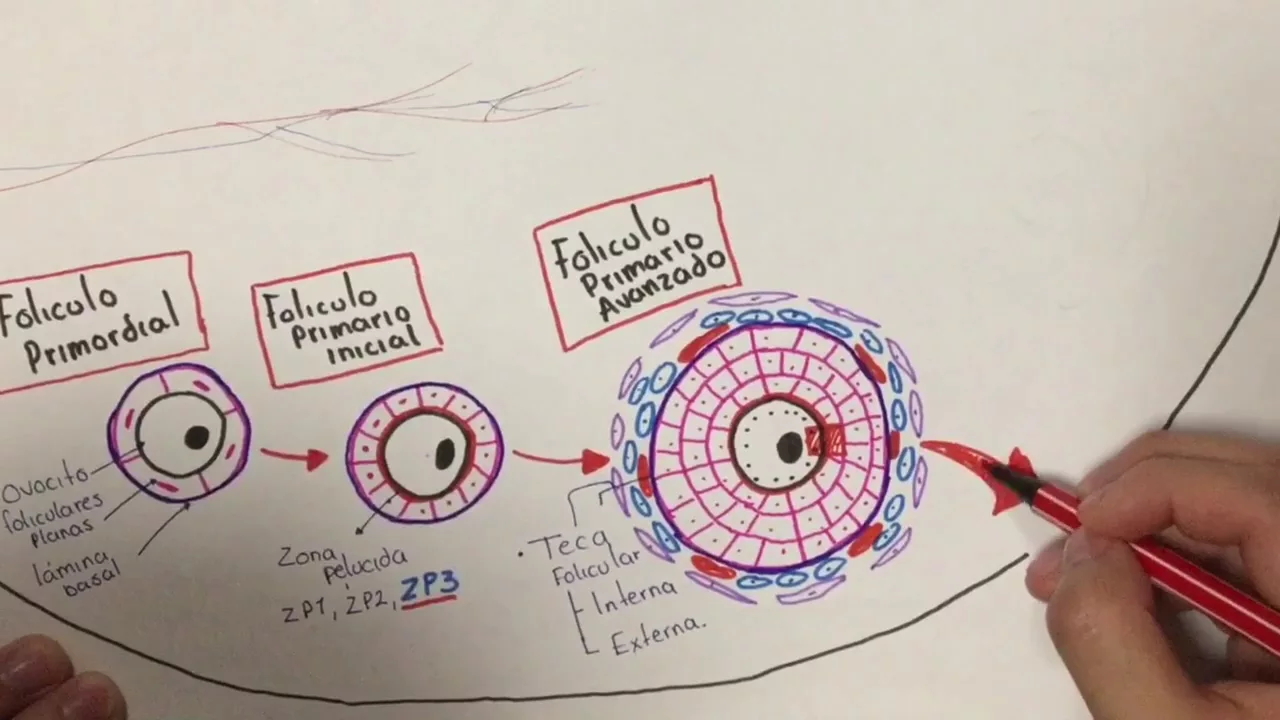 Foliculo
Primordial
Foliculo
Primario
inicial
Foliculo
Primario
Avanzado
Ovocito
foliculares
planas
lámina
basal
Zona
pelucida
ZP1, ZP2, ZP3
• Teca
Folicular
Interna
Externa.